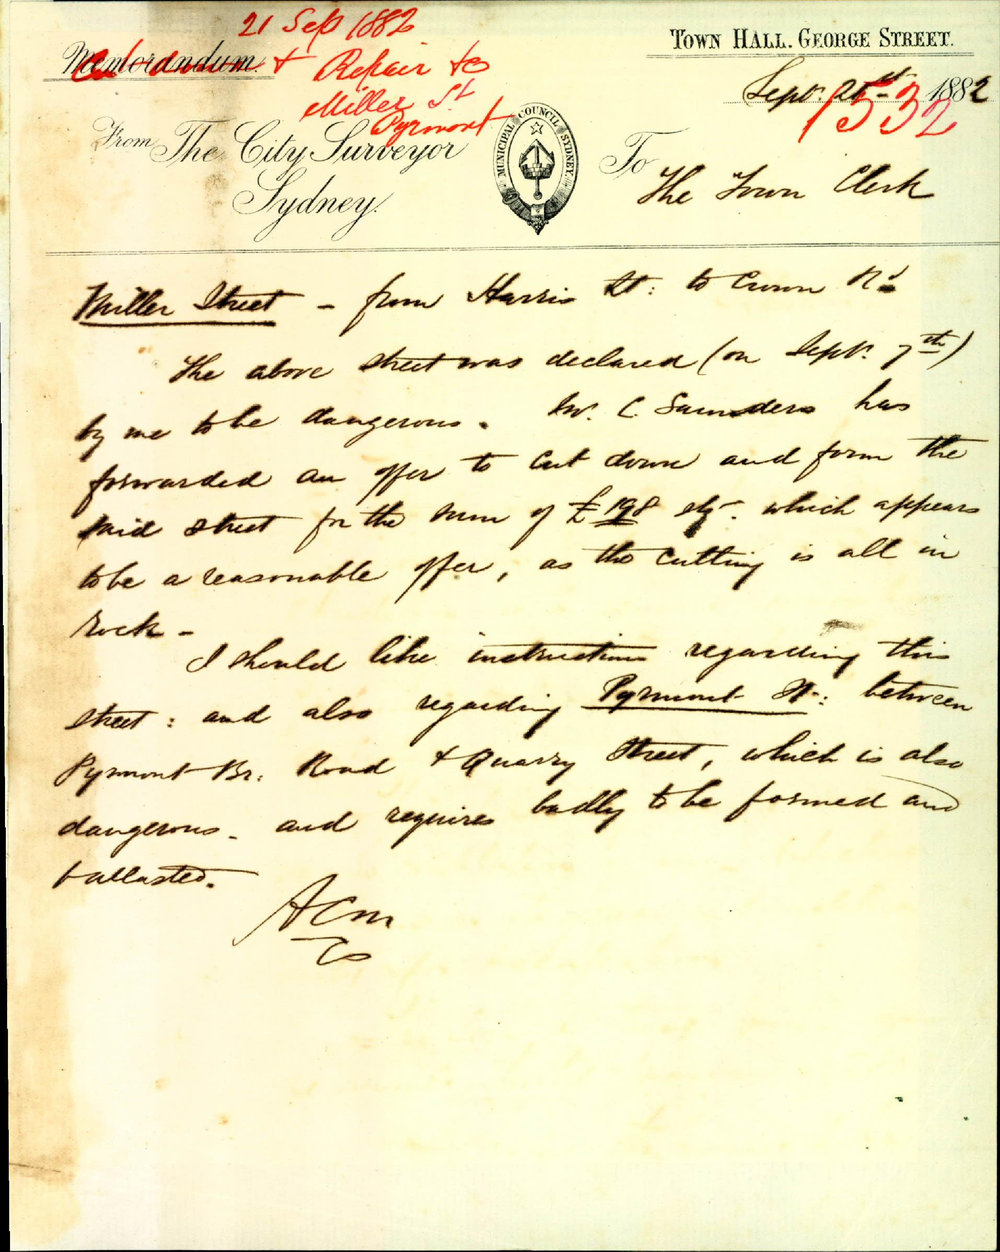 21 Sep 1882
Memorandum. & Repair to
Miller St
Pyrmont
TOWN HALL. GEORGE STREET.
Sept. 21st 1882
1532
From The City Surveyor
Sydney.
MUNICIPAL COUNCIL SYDNEY.
To
The Town Clerk
Miller Street - from Harris St: to Crown Rd
The above street was declared (on Sept. 7th)
by me to be dangerous. Mr. C Saunders has
forwarded an offer to cut down and form the
said street for the sum of £198 stg. which appears
to be a reasonable offer, as the cutting is all in
rock -
I should like instructions regarding this
street: and also regarding Pyrmont St: between
Pymont Br: Road & Quarry Street, which is also
dangerous - and requires badly to be formed and
ballasted.
ACM
CS